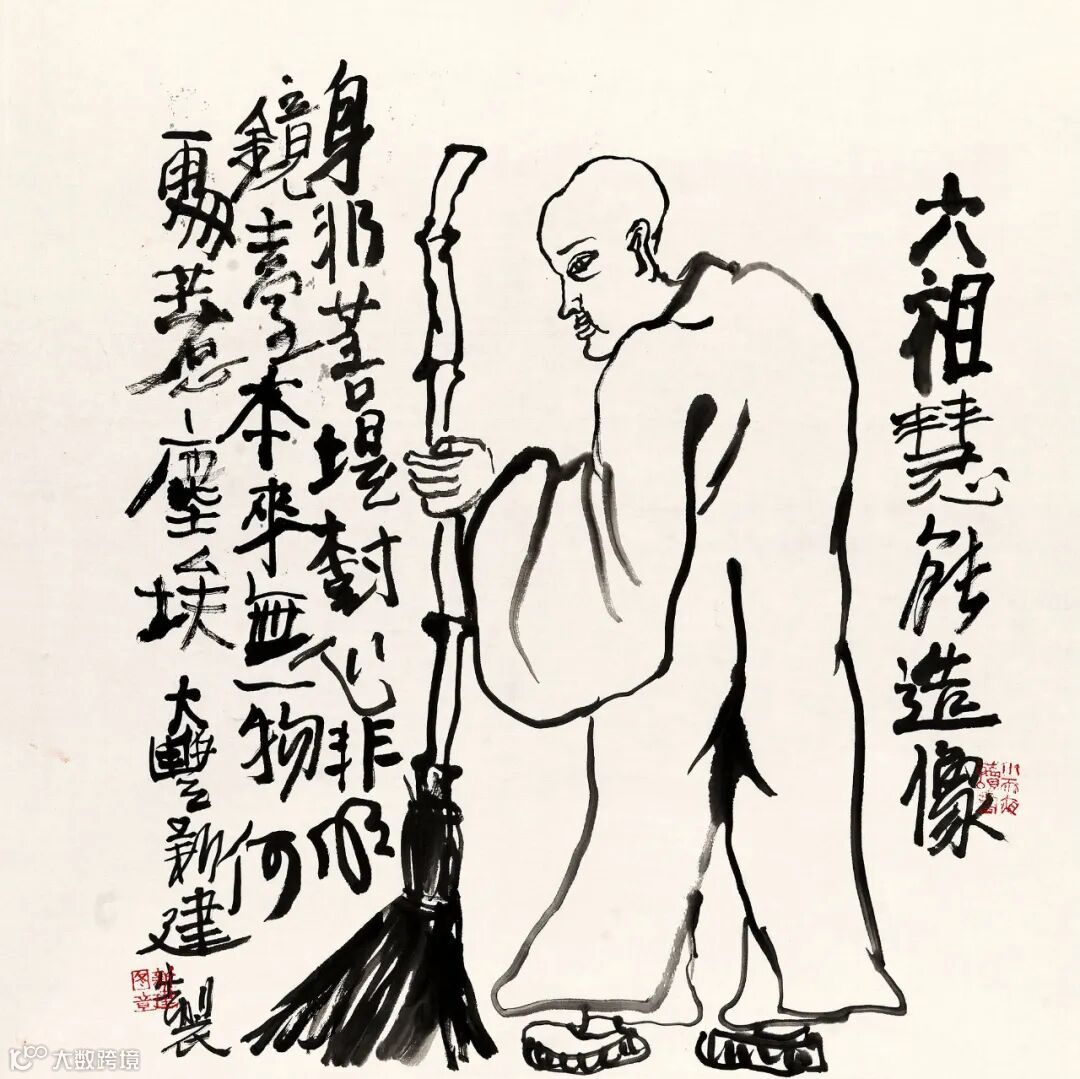 六祖慧能造像
身非菩堤樹心非明
鏡臺本來無一物何
惹塵埃 大豐新建製
新建图章
大数跨境